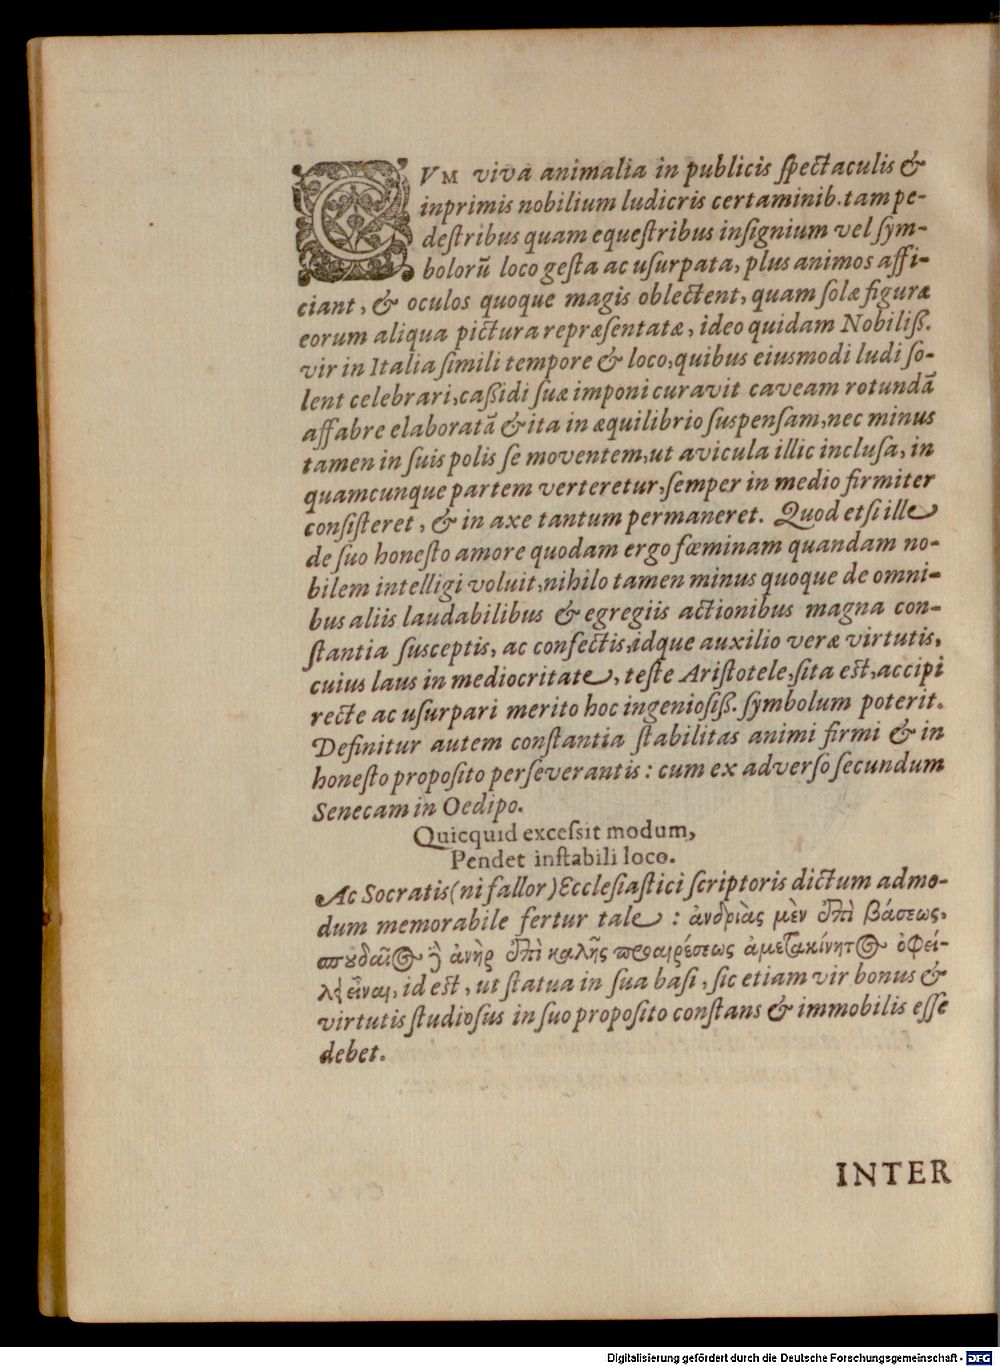 CVM viva animalia in publicis ſpectaculis &
inprimis nobilium ludicris certaminib. tam pe-
deſtribus quam equeſtribus inſignium vel ſym-
bolorũ loco geſta ac uſurpata, plus animos affi-
ciant, & oculos quoque magis oblectent, quam ſolæ figuræ
eorum aliqua pictura repræſentatæ, ideo quidam Nobiliß.
vir in Italia ſimili tempore & loco, quibus eiusmodi ludi ſo-
lent celebrari, caßidi ſuæ imponi curavit caveam rotundã
affabre elaboratã & ita in æquilibrio ſuspenſam, nec minus
tamen in ſuis polis ſe moventem, ut avicula illic incluſa, in
quamcunque partem verteretur, ſemper in medio firmiter
conſiſteret, & in axe tantum permaneret. Quod etſi ille
de ſuo honeſto amore quodam ergo fœminam quandam no-
bilem intelligi voluit, nihilo tamen minus quoque de omni-
bus aliis laudabilibus & egregiis actionibus magna con-
ſtantia ſusceptis, ac confectis, idque auxilio veræ virtutis,
cuius laus in mediocritate, teſte Ariſtotele, ſita eſt, accipi
recte ac uſurpari merito hoc ingenioſiß. ſymbolum poterit.
Definitur autem conſtantia ſtabilitas animi firmi & in
honeſto propoſito perſeverantis: cum ex adverſo ſecundum
Senecam in Oedipo.
Quicquid exceſsit modum,
Pendet inſtabili loco.
Ac Socratis (ni fallor) Eccleſiaſtici ſcriptoris dictum admo-
dum memorabile fertur tale: ἀνδριὰς μὲν ἐπὶ βάσεως,
σπουδαῖος δὲ ἀνὴρ ἐπὶ καλῆς προαιρέσεως ἀμετακίνητος ὀφεί-
λει εἶναι, id eſt, ut ſtatua in ſua baſi, ſic etiam vir bonus &
virtutis ſtudioſus in ſuo propoſito conſtans & immobilis eſſe
debet.
INTER
Digitalisierung gefördert durch die Deutsche Forschungsgemeinschaft - DFG